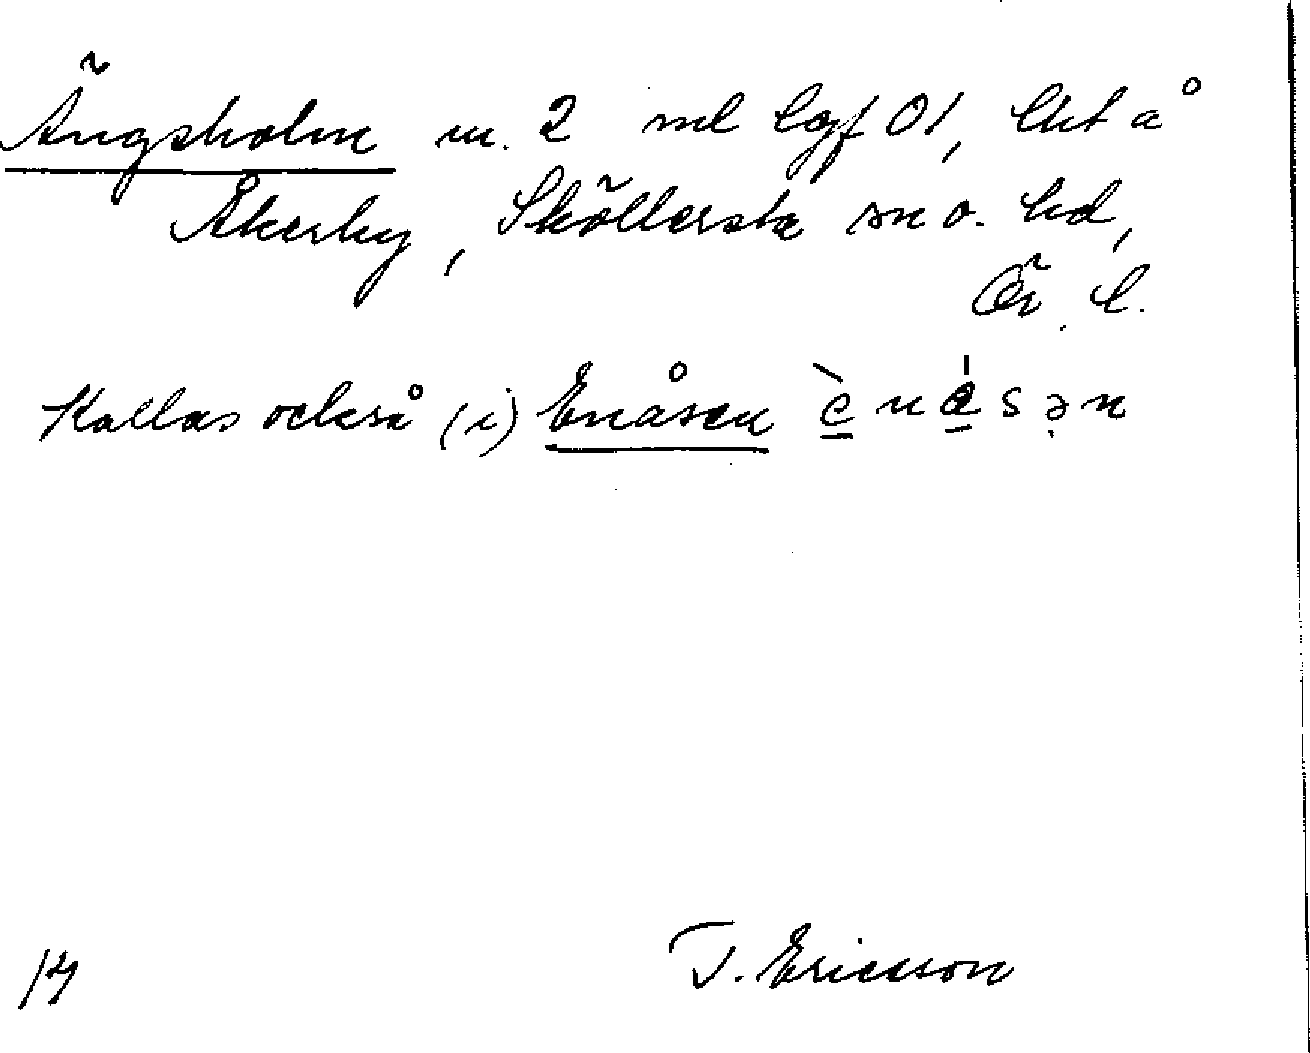 Ängsholm m. 2 ml lgf 01, lht å
Åkerby, Sköllersta sn o. hd,
Ör. l.
Kallas också (i) Enåsen
14 T. Ericsson